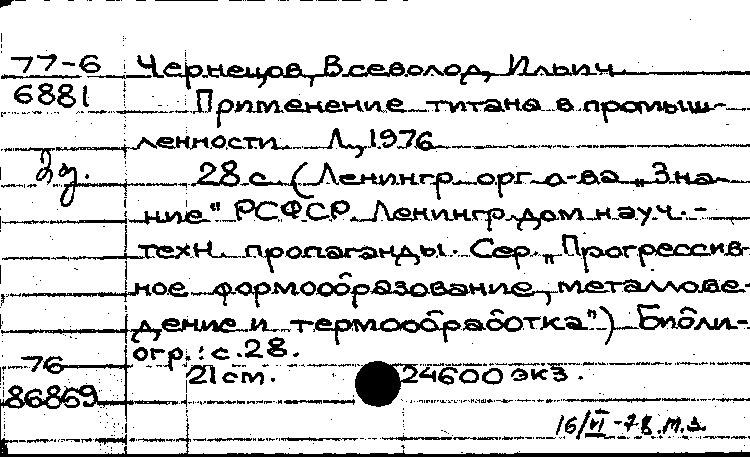 77-6 Чернецов, Всеволод, Ильич.
6881 Применение титана в промыш-
ленности. Л., 1976
2д. 28 с. (Ленингр. орг. о-ва „Зна-
ние" РСФСР. Ленингр. дом науч.-
техн. пропаганды. Сер. „Прогрессив-
ное формообразование, металлове-
дение и термообработка") Библи-
огр.: с. 28.
76 21 см. 24600 экз.
86869
16/VI-78.